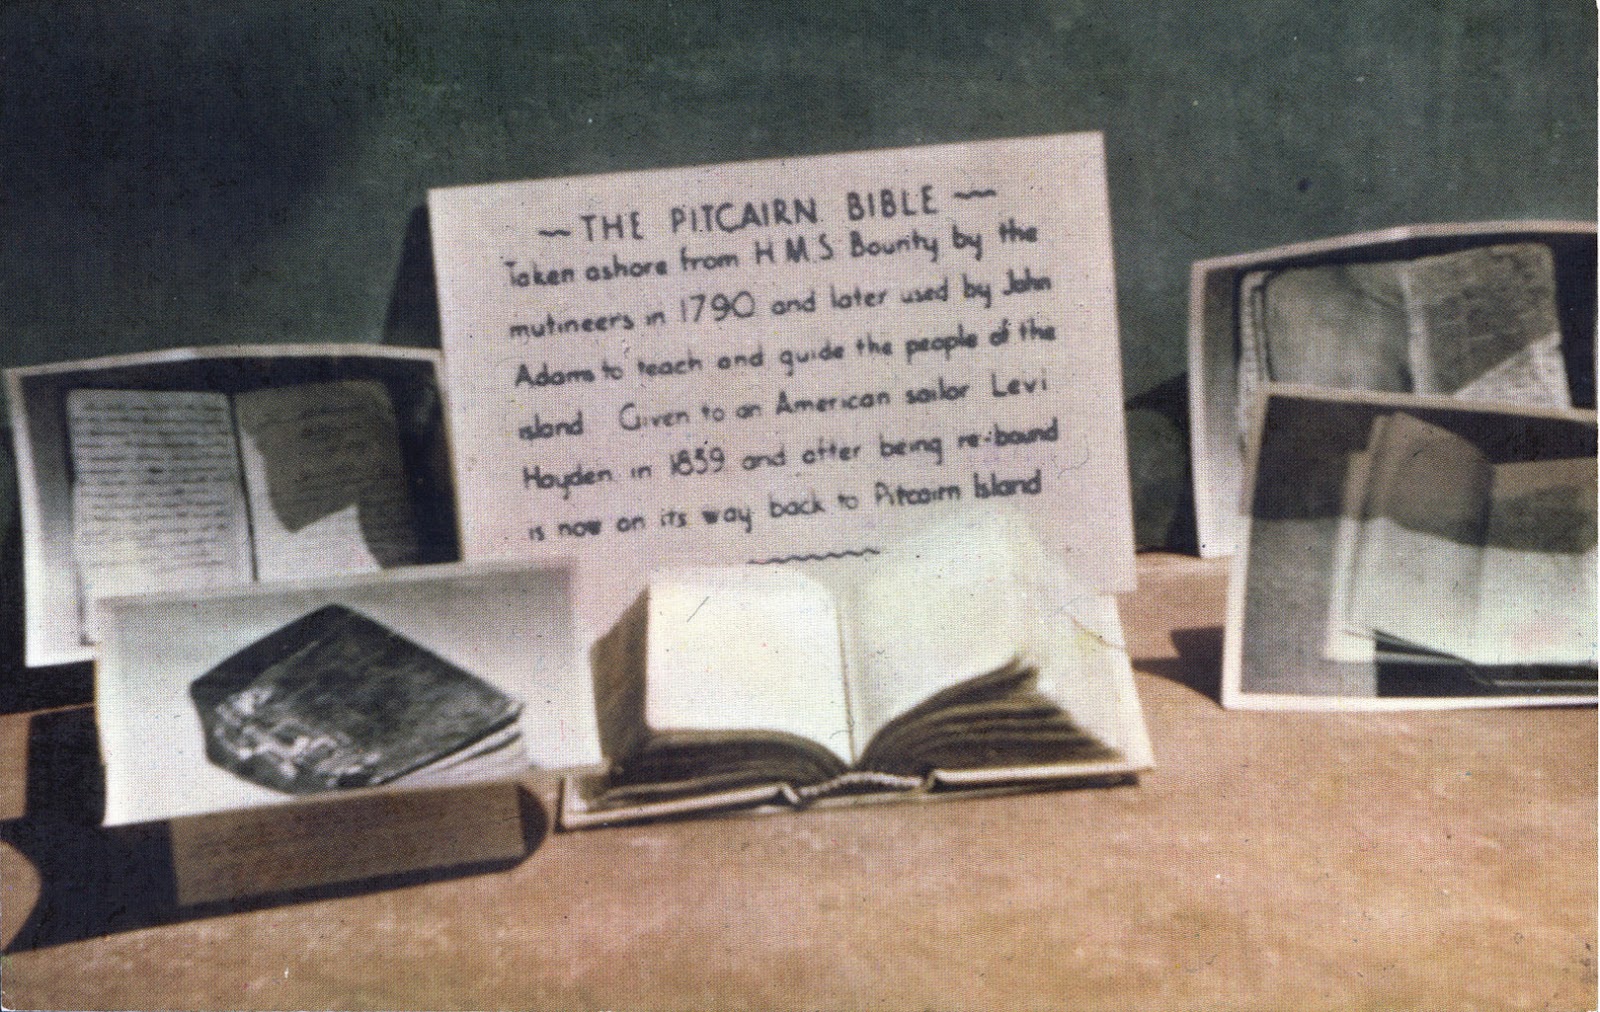 ~ THE PITCAIRN BIBLE ~
Taken ashore from H.M.S Bounty by the
mutineers in 1790 and later used by John
Adams to teach and guide the people of the
island Given to an American sailor Levi
Hayden in 1839 and after being re-bound
is now on its way back to Pitcairn Island